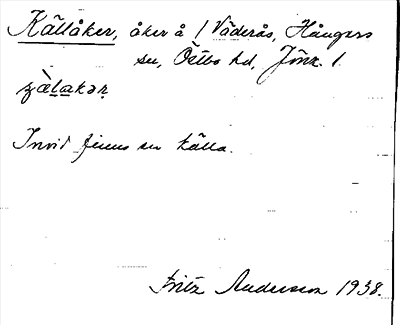 Källåker, åker å / Väderås, Hångers
sn, Östbo hd, Jönk. l.
Invid finns en källa.
Fritz Andersson 1938.